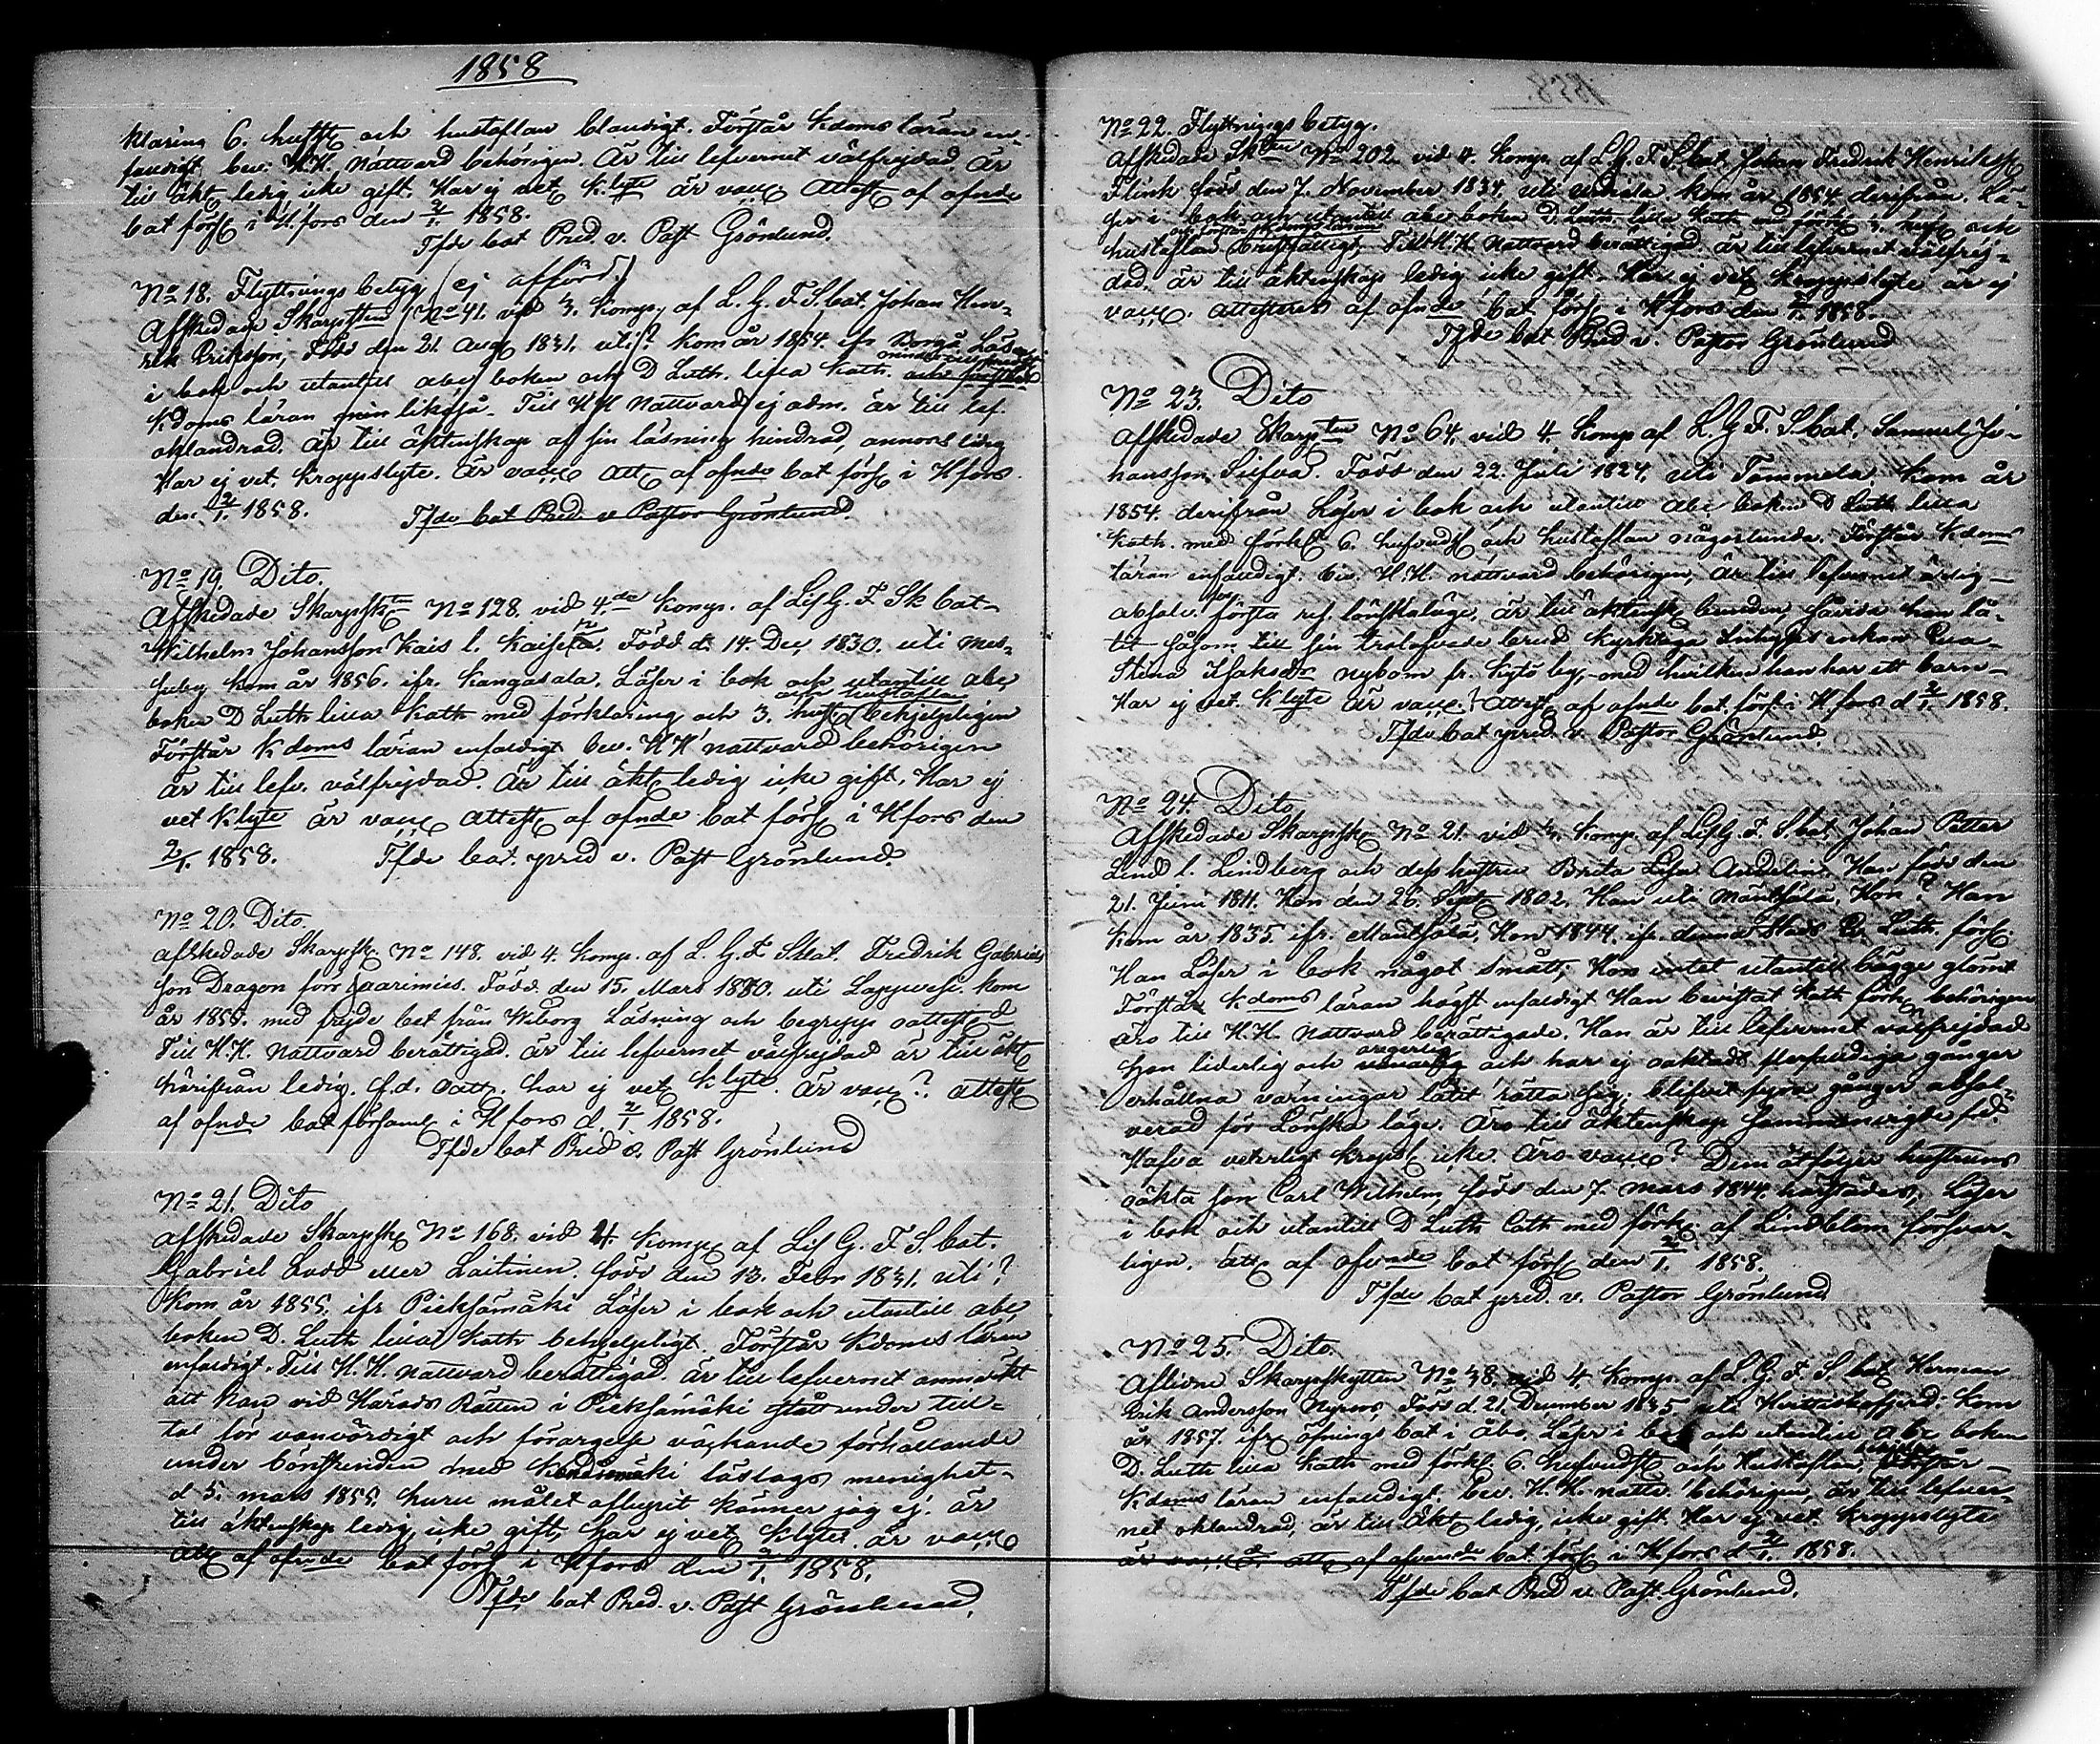 1858
klaring 6. hufst och hustaflan klandrigt. Förstår Kdoms läran en-
faldigt bev. H.H. Nattvard behörigen. Är till lefvernet välfrejdad. Är
till äkt ledig icke gift. Har ej vet Klyte är vacc Attest af ofnde
bat förs i Hfors den 2/1 1858.
Tfde bat Pred. v. Past Grönlund.
No 18. Flyttnings betyg (ej afförd.)
Afskedade Skarpsktten No 41. vid 3. Komp. af L. G. F. S. bat. Johan Hen-
rik Eriksson, Född den 21 Aug 1831. uti? kom år 1854. ifr Borgå Läser
i bok och utantill abc boken och D Luth. lilla Kath.
Kdoms läran likaså. Till H.H. Nattvard ej adm. är till lef.
oklandrad. Är till äktenskap af sin läsning hindrad, annors ledig
Har ej vet. Kroppslyte. Är vacc Att af ofnde bat förs i Hfors
den 2/1. 1858. Tfde bat Pred. v Pastor Grönlund.
No 19. Dito.
Afskedade Skarpskn No 128. vid 4.de Komp. af Lif G. F Sk bat-
Wilhelm Johansson Kais l. Född d. 14. Dec 1830. uti Mes-
suby kom år 1856. ifr. Kangasala. Läser i bok och utantill abc
boken D Luth lilla Kath med förklaring och 3. hufst och hustaflan behjelpligen
Förstår Kdoms läran enfaldigt bev. H H nattvard behörigen
är till lefv. välfrejdad. Är till äkt ledig icke gift, Har ej
vet Klyte är vacc Attest af ofnde bat förs i Hfors den
2/1. 1858. Tfde bat. pred v. Past Grönlund.
No 20. Dito.
Afskedade Skarpsk No 148. vid 4. Komp. af L. G. F S bat. Fredrik Gabriels
son Dragon förr Född den 15. Mars 1830. uti Lappwesi. kom
år 1855. med frejde bet från Wiborg Läsning och begrepp oattest
Till H.H. Nattvard berättigad. är till lefvernet välfrejdad är till äkt
härifrån ledig. f.d. oatt. har ej vet Klyte. Är vacc? Attest
af ofnde bat församl i Hfors d. 2/1 1858.
Tfde bat Pred v. Past Grönlund
No 21. Dito
Afskedade Skarpsk No 168. vid 4. Komp af Lif G. F S. bat.
Gabriel Ladd eller Laitinen. född den 13. Febr 1831. uti?
Kom år 1855. ifr Pieksämäki Läser i bok och utantill abc
boken D. Luth lilla Kath behjelpligt. Förstår Kdoms läran
enfaldigt. Till H.H. nattvard berättigad. är till lefvernet anmärkt
att han vid Härads Rätten i Pieksämäki stått under till-
tal för vanvördigt och förargelse väckande förhållande
under bönstunden med läslags menighet-
d 5. mars 1855. huru målet aflupit känner jag ej. är
till äktenskap ledig, icke gift, har ej vet. Klyte. är vacc
Att af ofnde bat förs i Hfors den 2/1. 1858.
Tfde bat Pred. v. Past Grönlund.
No 22. Flyttnings betyg.
Afskedade Sktten No 202. vid 4. Komp. af L G. F. S bat. Johan Fredrik Henrikss
Flink född den 7. November 1834. uti kom år 1854. derifrån. Lä-
ser i bok och utantill abc boken D. Luth. lilla Kath och
hustaflan Till H.H. Nattvard berättigad. är till lefvernet välfrej-
dad. är till äktenskap ledig icke gift. Har ej vet. Kroppslyte är ej
vacc. Attesteras af ofnde bat förs i Hfors den 2/1. 1858.
Tfde bat Pred v. Pastor Grönlund
No 23. Dito
Afskedade Skarpsten No 64. vid 4. Komp af L. G. F. S bat. Samuel Jo-
hansson Född den 22. Juli 1824. uti Tammela. Kom år
1854. derifrån Läser i bok och utantill abc boken D Luth lilla
Kath. med förkl 6. hufvuds och hustaflan någorlunda. Förstår Kdoms
läran enfaldigt. bev. H.H. nattvard behörigen, Är till lefvernet
absolv. för första res. lönskaläge. är till äktensk bunden, såvida han lå-
tit såsom till sin trolofvade brud kyrktaga enkan Eva
Stina Isaksdr nybom fr. by, med hvilken han har ett barn-
Har ej vet. Klyte Är vacc. Attest af ofnde bat. förs i Hfors d 2/1. 1858.
Tfde bat pred. v. Pastor Grönlund.
No 24. Dito
Afskedade Skarpsk No 21. vid 4. Komp. af Lif G. F. S bat Johan Petter
Lind l. Lindberg och dess hustru Brita Lisa Andelin. Han född den
21. Juni 1811. Hon den 26. Sept 1802. Han uti Mäntsälä, Hon? Han
kom år 1835. ifr. Mäntsälä, Hon 1844. ifr. denna Stads Ev. Luth. förs.
Han Läser i bok något smått, Hon intet utantill bägge glömt
Förstår Kdoms läran högst enfaldigt Han bevistat Kath förh behörigen
äro till H.H. Nattvard berättigade. Han är till lefvernet välfrejdad
Hon liderlig och och har ej oaktadt flerfaldiga gånger
erhållna varningar låtit rätta sig. blifvit fyra gånger absol-
verad för Lönska läge. Äro till äktenskap sammanvigde
Hafva veterligt Kroppsl icke. Äro vacc? Dem åtföljer hustruns
oäkta son Carl Wilhelm, född den 7. mars 1844. härstädes, Läser
i bok och utantill D Luth Cath med förk. af Lindblom försvar-
ligen. Att af ofvnde bat förs den 2/1. 1858.
Tfde bat pred. v. Pastor Grönlund
No 25. Dito.
Aflidne Skarpskytten No 38. vid 4. Komp. af L. G. F. S. bat Herman
Erik Andersson Nyroos, Född d. 21 December 1835 uti kom
år 1857. ifr öfnings bat i Åbo. Läser i bok och utantill abc boken
D. Luth lilla Kath med förkl. 6. hufvudst och Hustaflan,
Kdoms läran enfaldigt. Bev. H.H. nattv. behörigen, är till lefver-
net oklandrad, är till Äkt ledig, icke gift Har ej vet. Kroppslyte
är vacc att af ofvande bat. förs i Hfors d 2/1. 1858.
Tfde bat Pred v. Past. Grönlund.